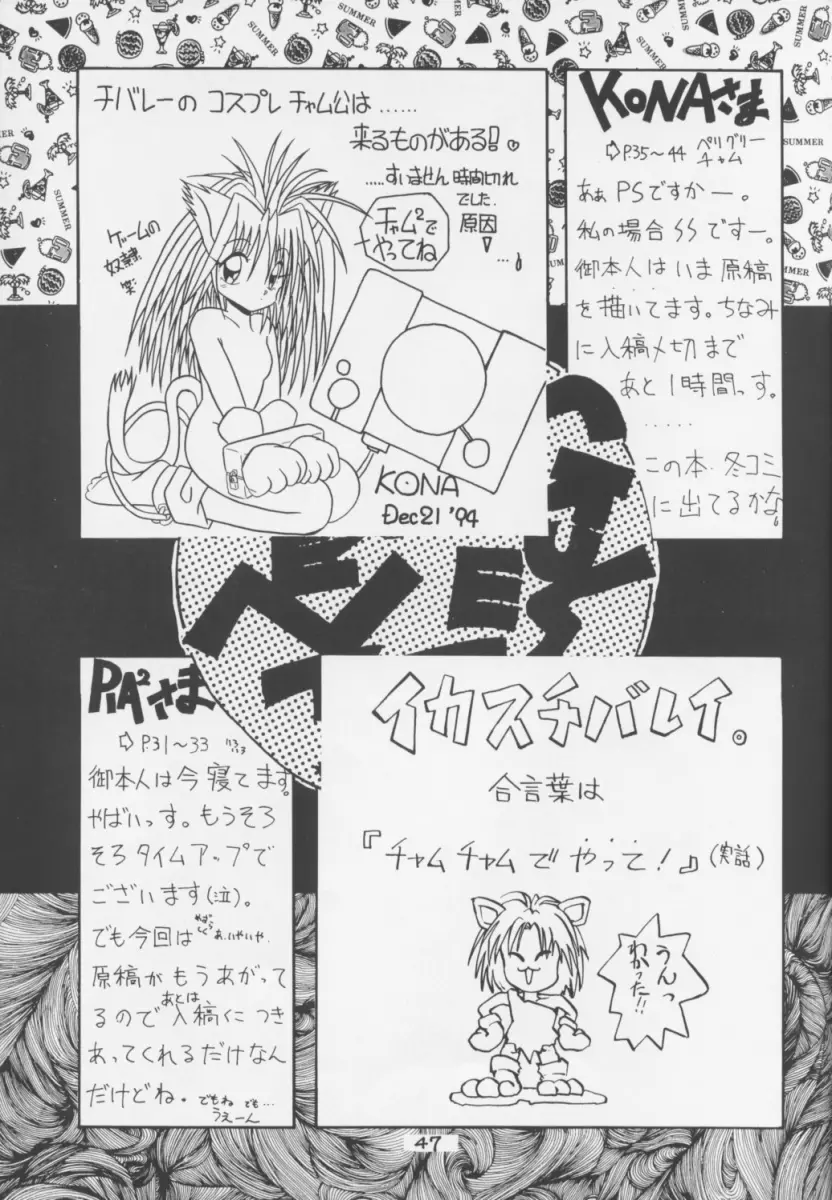 チバレーの コスプレ チャム公は……
来るものがある!!♥
……すいません 時間切れ
でした。
原因
チャム²で
やってね
ゲームの
奴隷
笑
KONA
Dec 21 '94
KONAさま
⇨P.35〜44 ペリグリー
チャム
あぁ PSですかー。
私の場合 SSですー。
御本人は いま 原稿
を描いてます。ちなみ
に入稿〆切まで
あと1時間っす。
……
この本・冬コミ
に出てるかな。
PIA²さま
⇨P.31〜33
御本人は今寝てます。
やばいっす。もうそろ
そろ タイムアップで
ございます(泣)。
でも今回は
あ、いやいや
原稿が もうあがって
るので あとは 入稿に つき
あってくれるだけなん
だけどね。 でもね でも…
うえーん
イカスチバレイ。
合言葉は
『チャム チャム で やって!』(実話)
うんっ
わかった!!
SUMMER
47